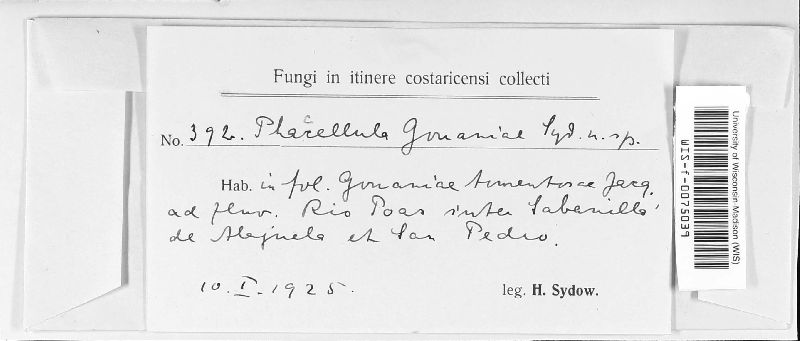 Fungi in itinere costaricensi collecti
No. 392. Phacellula Gouaniae Syd. n. sp.
Hab. in fol. Gouaniae tomentosae Jacq.
ad fluv. Rio Poas inter Sabanilla
de Alajuela et San Pedro.
10. I. 1925.
leg. H. Sydow.
University of Wisconsin-Madison (WIS)
WIS-f-0075039